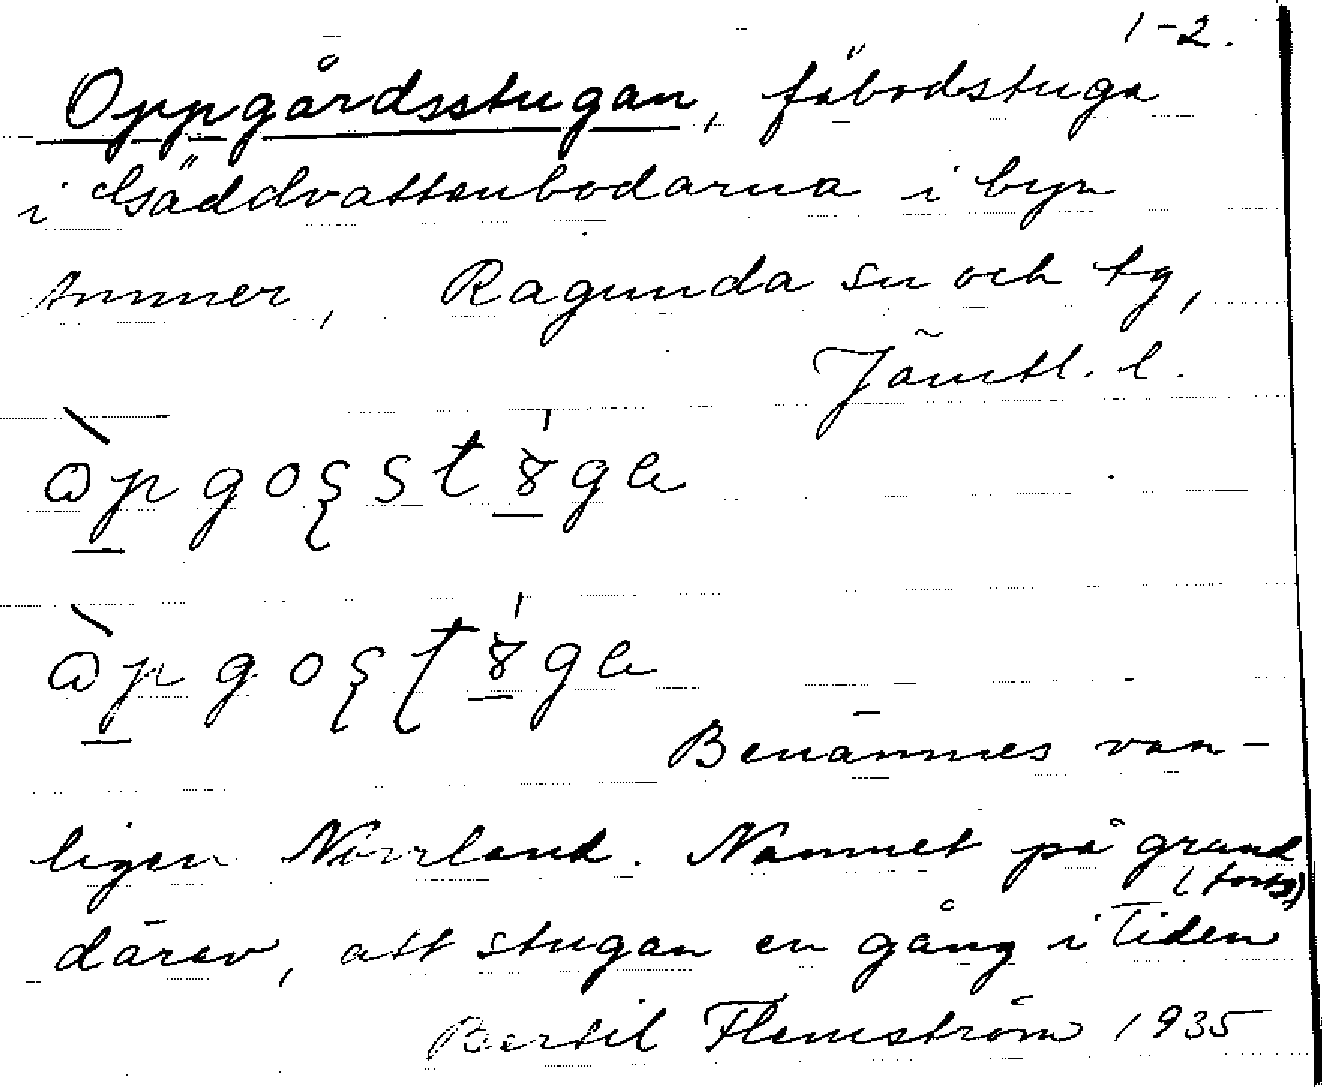 1-2.
Oppgårdsstugan, fäbodstuga
i Gäddvattenbodarna i byn
Ammer, Ragunda sn och tg,
Jämtl. l.
Benämnes van-
ligen Norrland. Namnet på grund
(forts)
därav, att stugan en gång i tiden
Bertil Flemström 1935